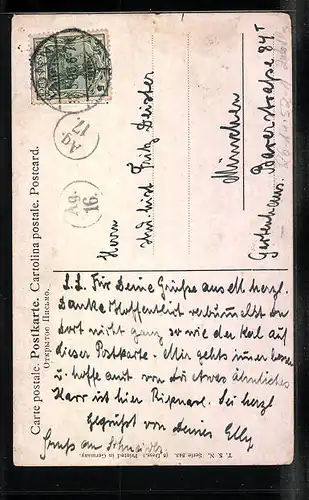 Carte postale. Postkarte. Cartolina postale. Postcard.
Открытое Письмо.
Ag.
17.
Ag.
16.
Herrn
Fritz Deister
München
Gartenhaus. 84 I
L. L. Für Deine Grüße aus M. herzl.
Danke. Hoffentlich verbummelst Du
dort nicht ganz so wie der Kerl auf
dieser Postkarte. Mir gehts immer besser
u. hoffe auch von Dir etwas ähnliches
Karr ist hier. Sei herzl
gegrüßt von Deiner Elly
Gruss an
T. S. N. Serie (6 Dess.) Printed in Germany.